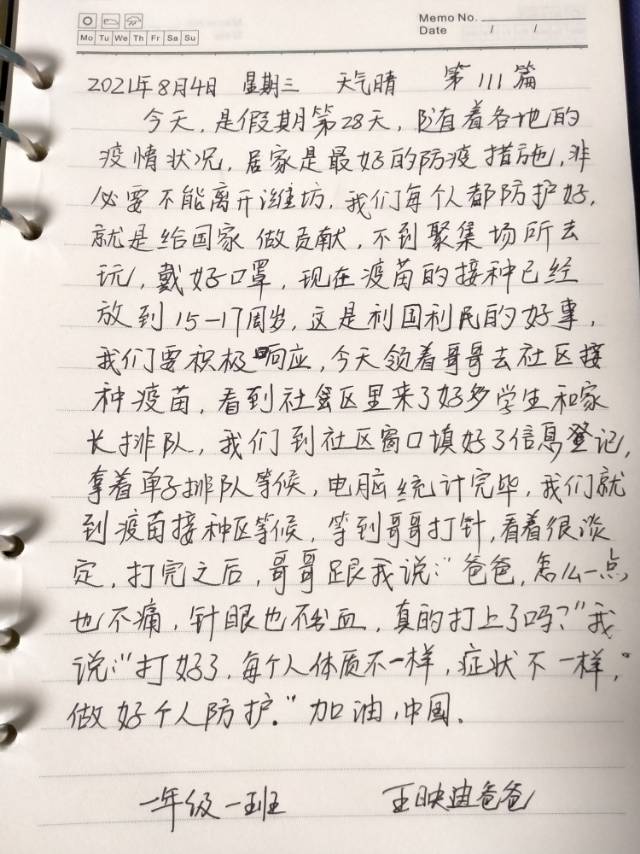 Memo No.
Mo Tu We Th Fr Sa Su
Date / /
2021年8月4日 星期三 天气晴 第111篇
今天,是假期第28天,随着各地的
疫情状况,居家是最好的防疫措施,非
必要不能离开潍坊,我们每个人都防护好,
就是给国家做贡献,不到聚集场所去
玩,戴好口罩,现在疫苗的接种已经
放到15-17周岁,这是利国利民的好事,
我们要积极响应,今天领着哥哥去社区接
种疫苗,看到社区里来了好多学生和家
长排队,我们到社区窗口填好了信息登记,
拿着单子排队等候,电脑统计完毕,我们就
到疫苗接种区等候,等到哥哥打针,看着很淡
定,打完之后,哥哥跟我说:“爸爸,怎么一点
也不痛,针眼也不出血,真的打上了吗?”我
说:“打好了,每个人体质不一样,症状不一样,
做好个人防护。”加油,中国。
一年级一班 王映迪爸爸